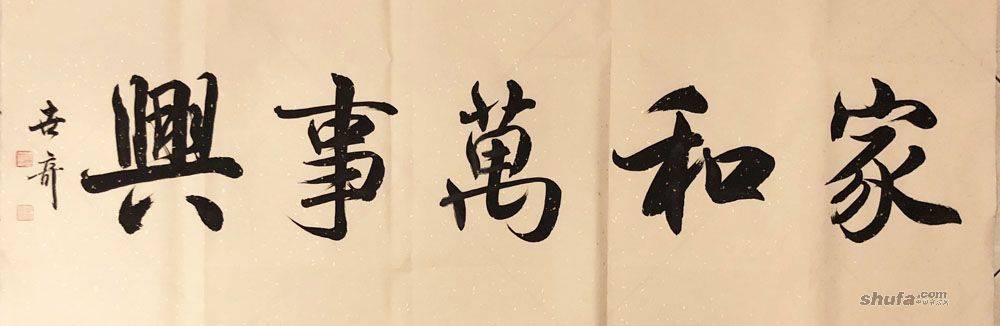 家和萬事興
shufa.com